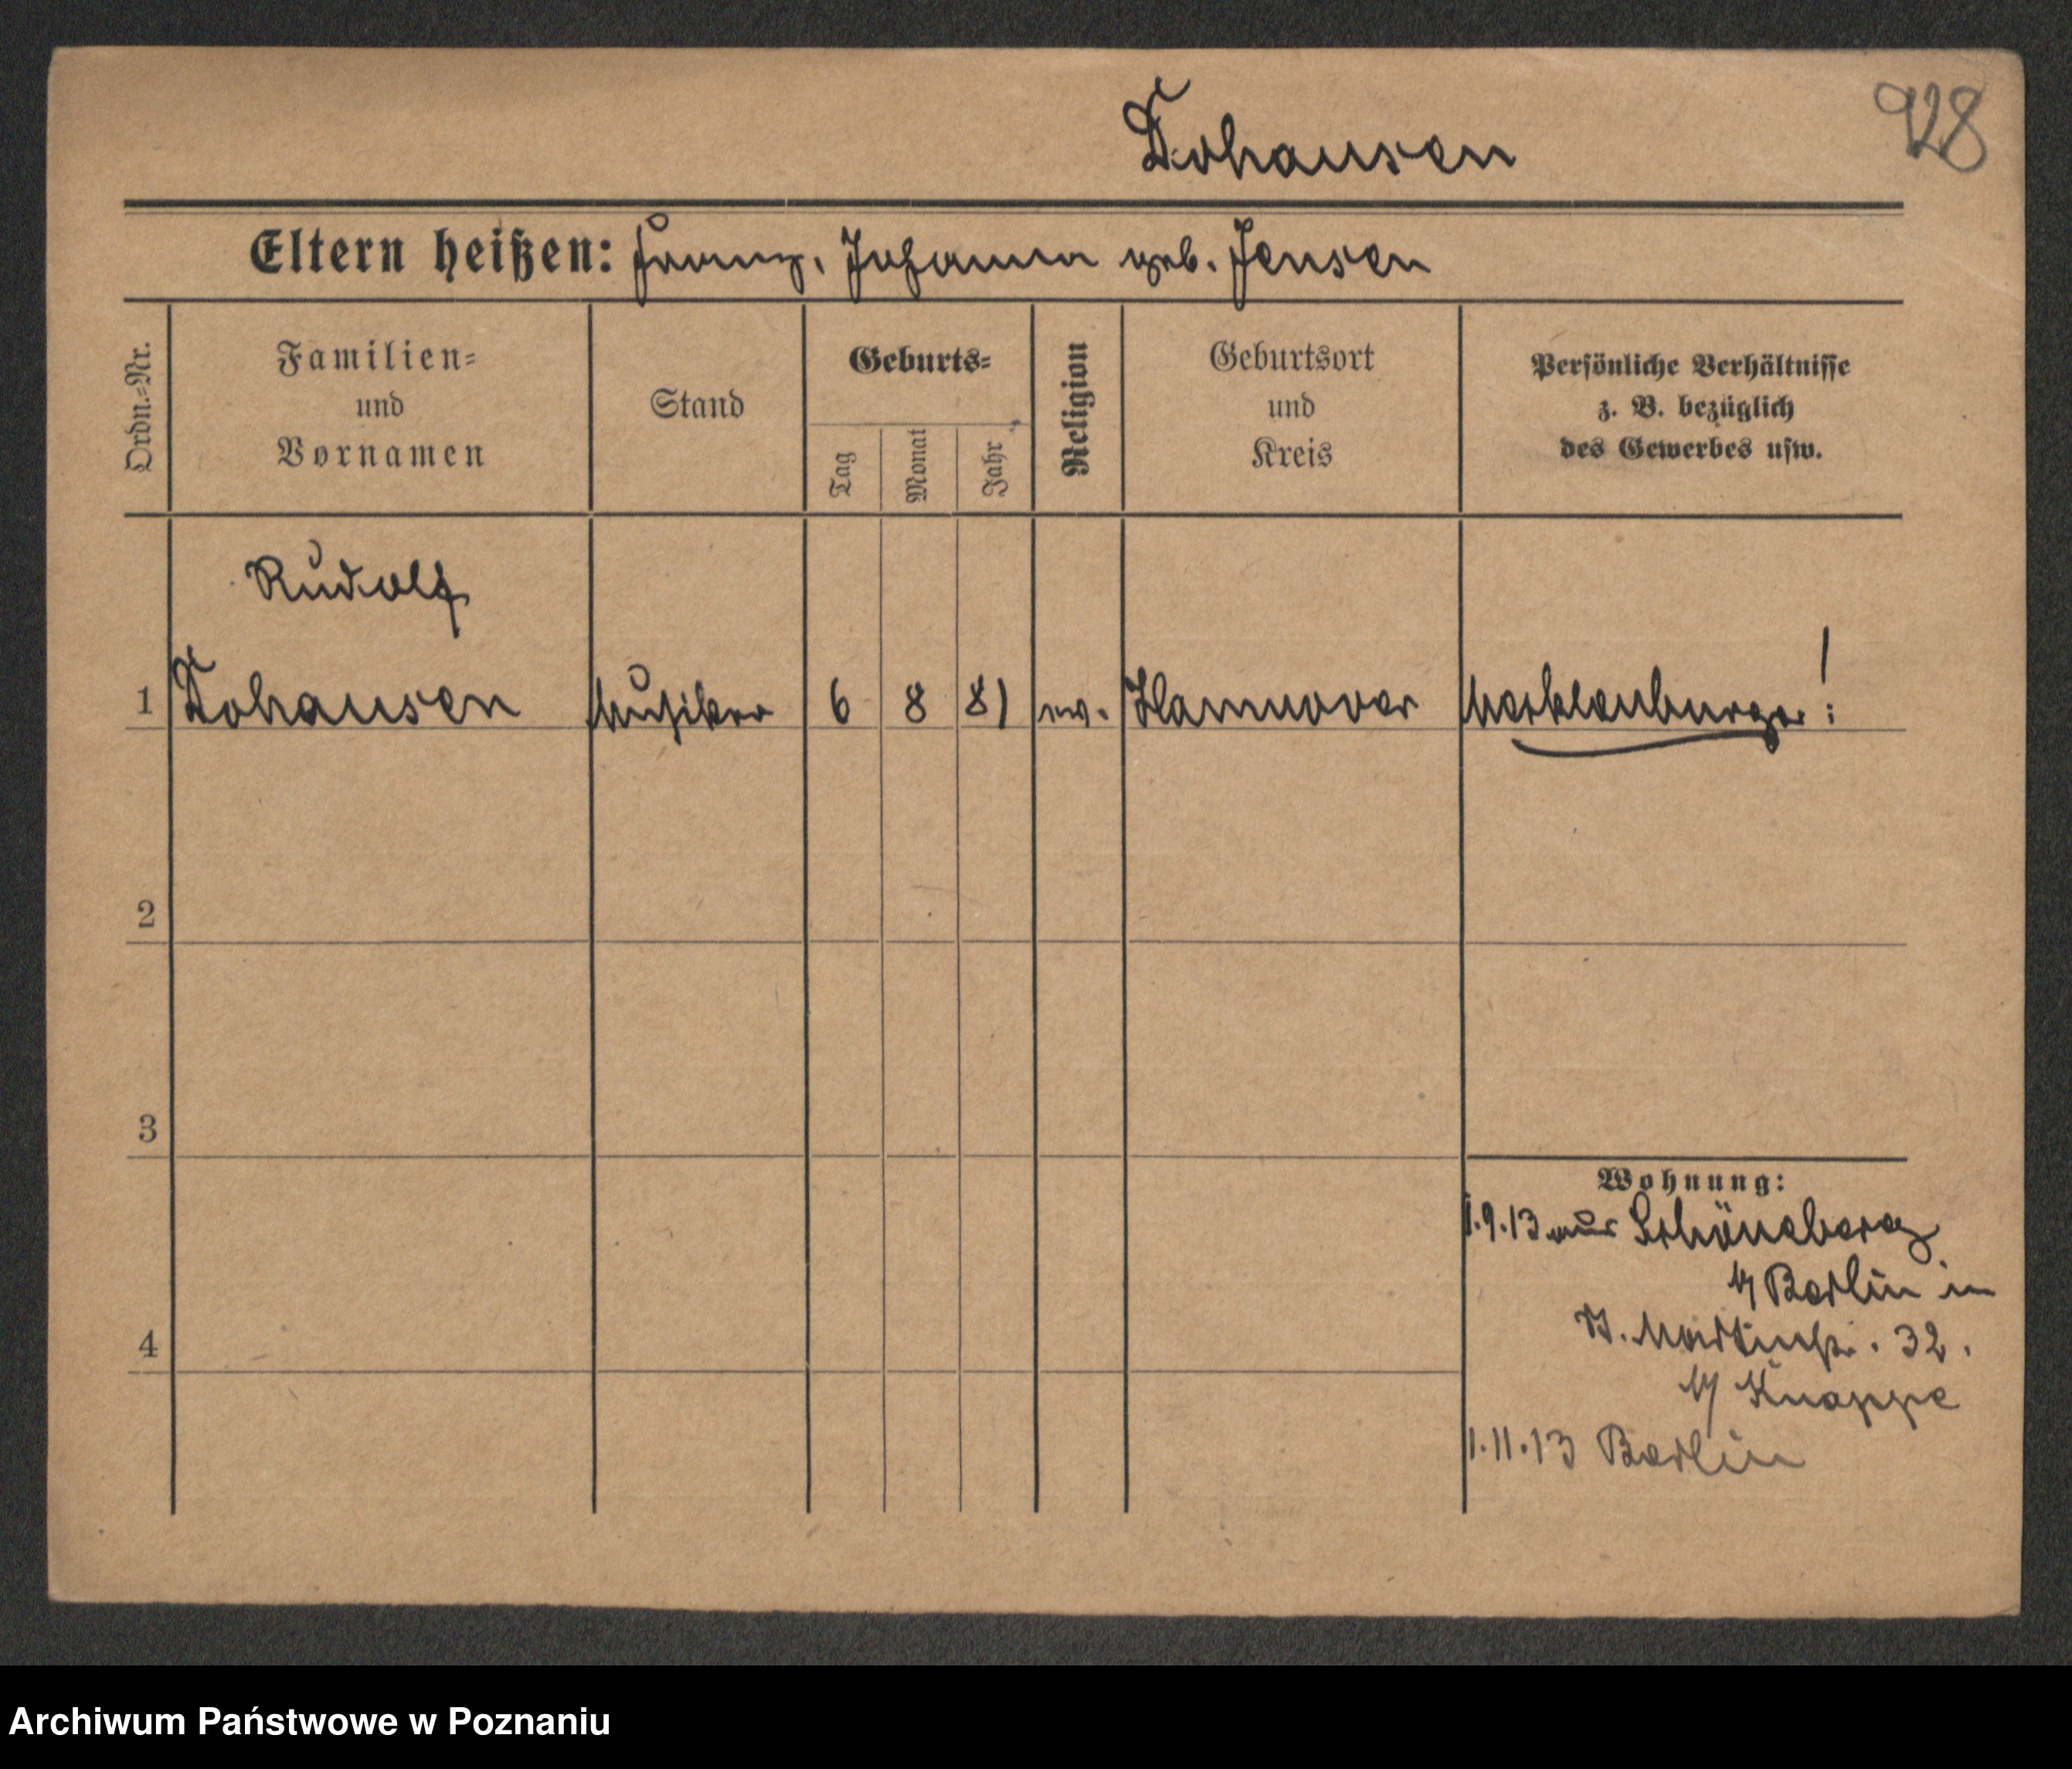 Dohausen
928
Eltern heißen: Franz, Johanna geb. Jensen
Ordn.=Nr.
Familien=
und
Vornamen
Stand
Geburts=
Tag
Monat
Jahr
Religion
Geburtsort
und
Kreis
Persönliche Verhältnisse
z. B. bezüglich
des Gewerbes usw.
Rudolf
1 Dohausen Musiker 6 8 81 ev. Hannover Mecklenburger!
2
3
4
Wohnung:
1.9.13 aus Schöneberg
b/ Berlin in
St. Martinstr. 32.
b/ Knappe
1.11.13 Berlin
Archiwum Państwowe w Poznaniu